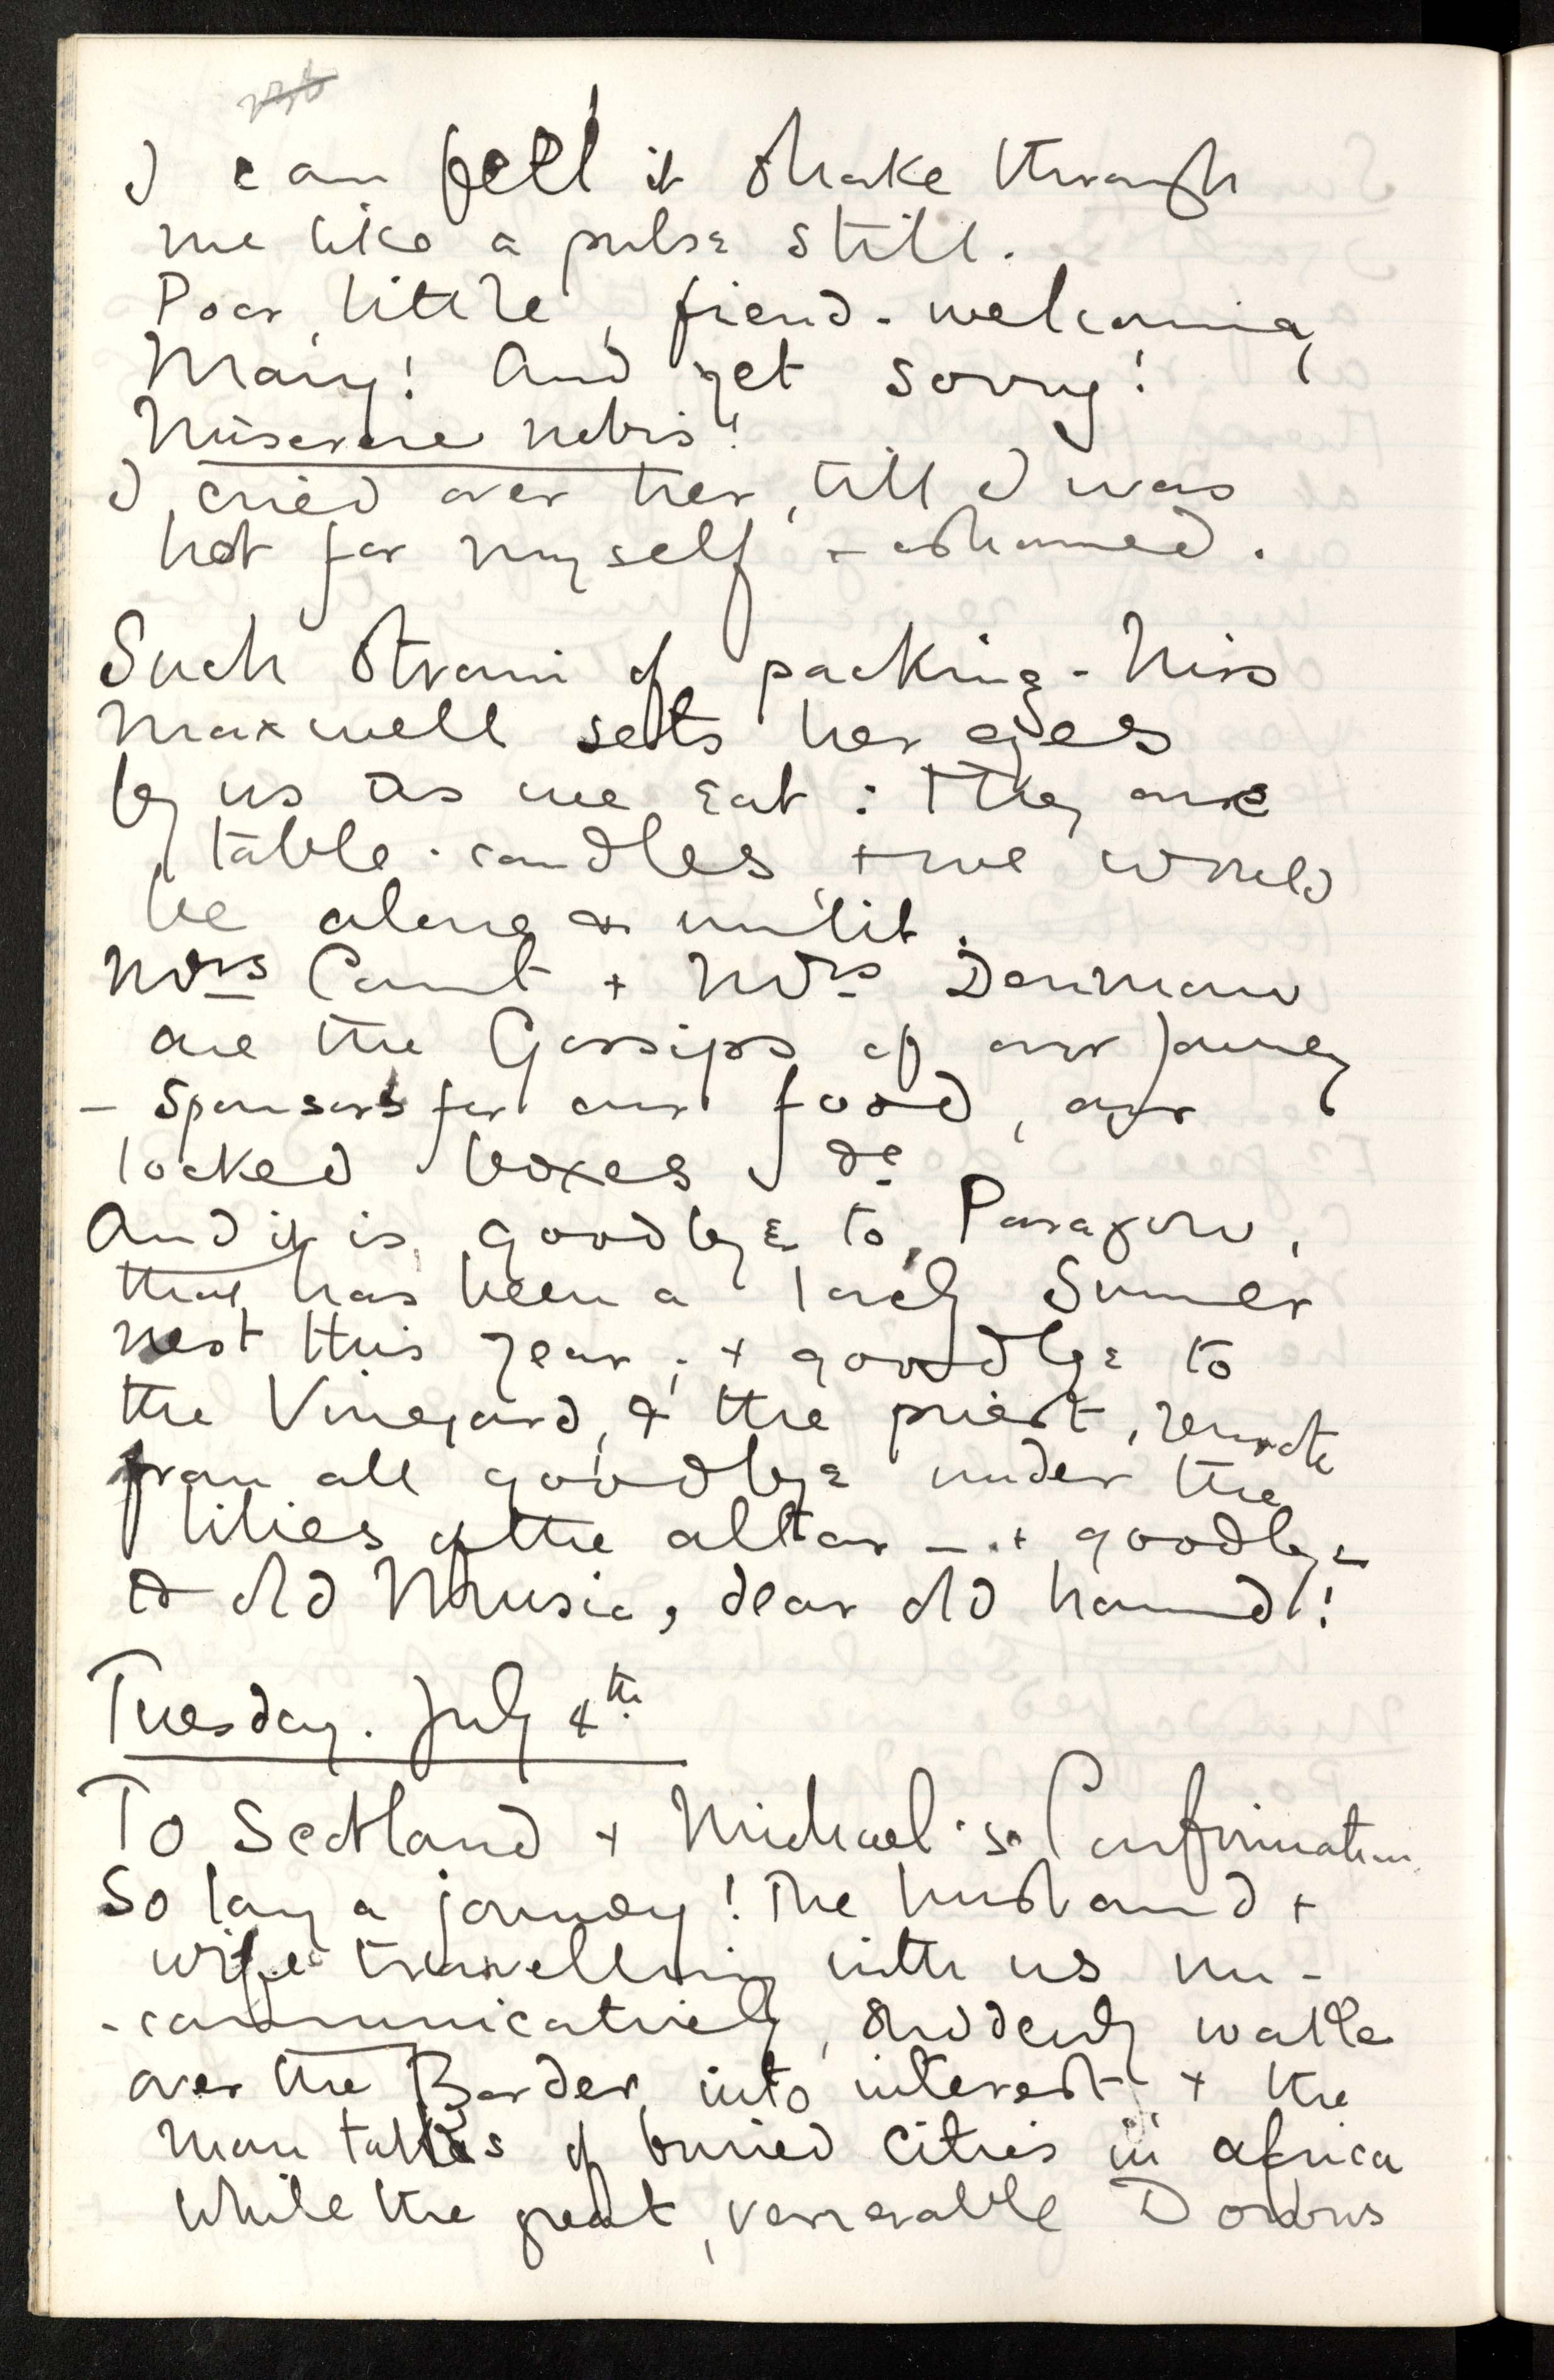 I can feel it shake through
me like a pulse still.
Poor, little, fiend-welcoming
Mary! And yet sorry!
Miserere nobis!
I cried over her, till I was
hot for myself & ashamed.
Such strain of packing. Miss
Maxwell sets her eyes
by us as we eat: They are
table-candles, & we would
be alone & unlit.
Mrs & Mrs Denman
are the Gossips of our journey
- Sponsors for our food, our
locked boxes &c
And it is goodbye to Paragon,
that has been a lovely Summer
nest this year; & goodbye to
the Vineyard, & the priest, remote
from all goodbye under the
lilies of the altar - & goodbye
to old Music, dear old hound!
Tuesday. July 4th
To Scotland & Michael's Confirmation
So long a journey! The husband &
wife travelling with us un-
-communicatively, suddenly walk
over the Border into interest & the
man talks of buried cities in Africa
While the great, venerable Downs